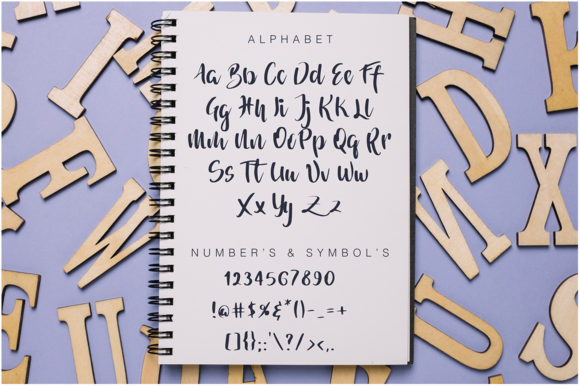 ALPHABET
Aa Bb Cc Dd Ee Ff
Gg Hh Ii Jj Kk Ll
Mm Nn Oo Pp Qq Rr
Ss Tt Uu Vv Ww
Xx Yy Zz
NUMBER'S & SYMBOL'S
1234567890
!@#$%&*()-_=+
[]{};:'\?/><,.